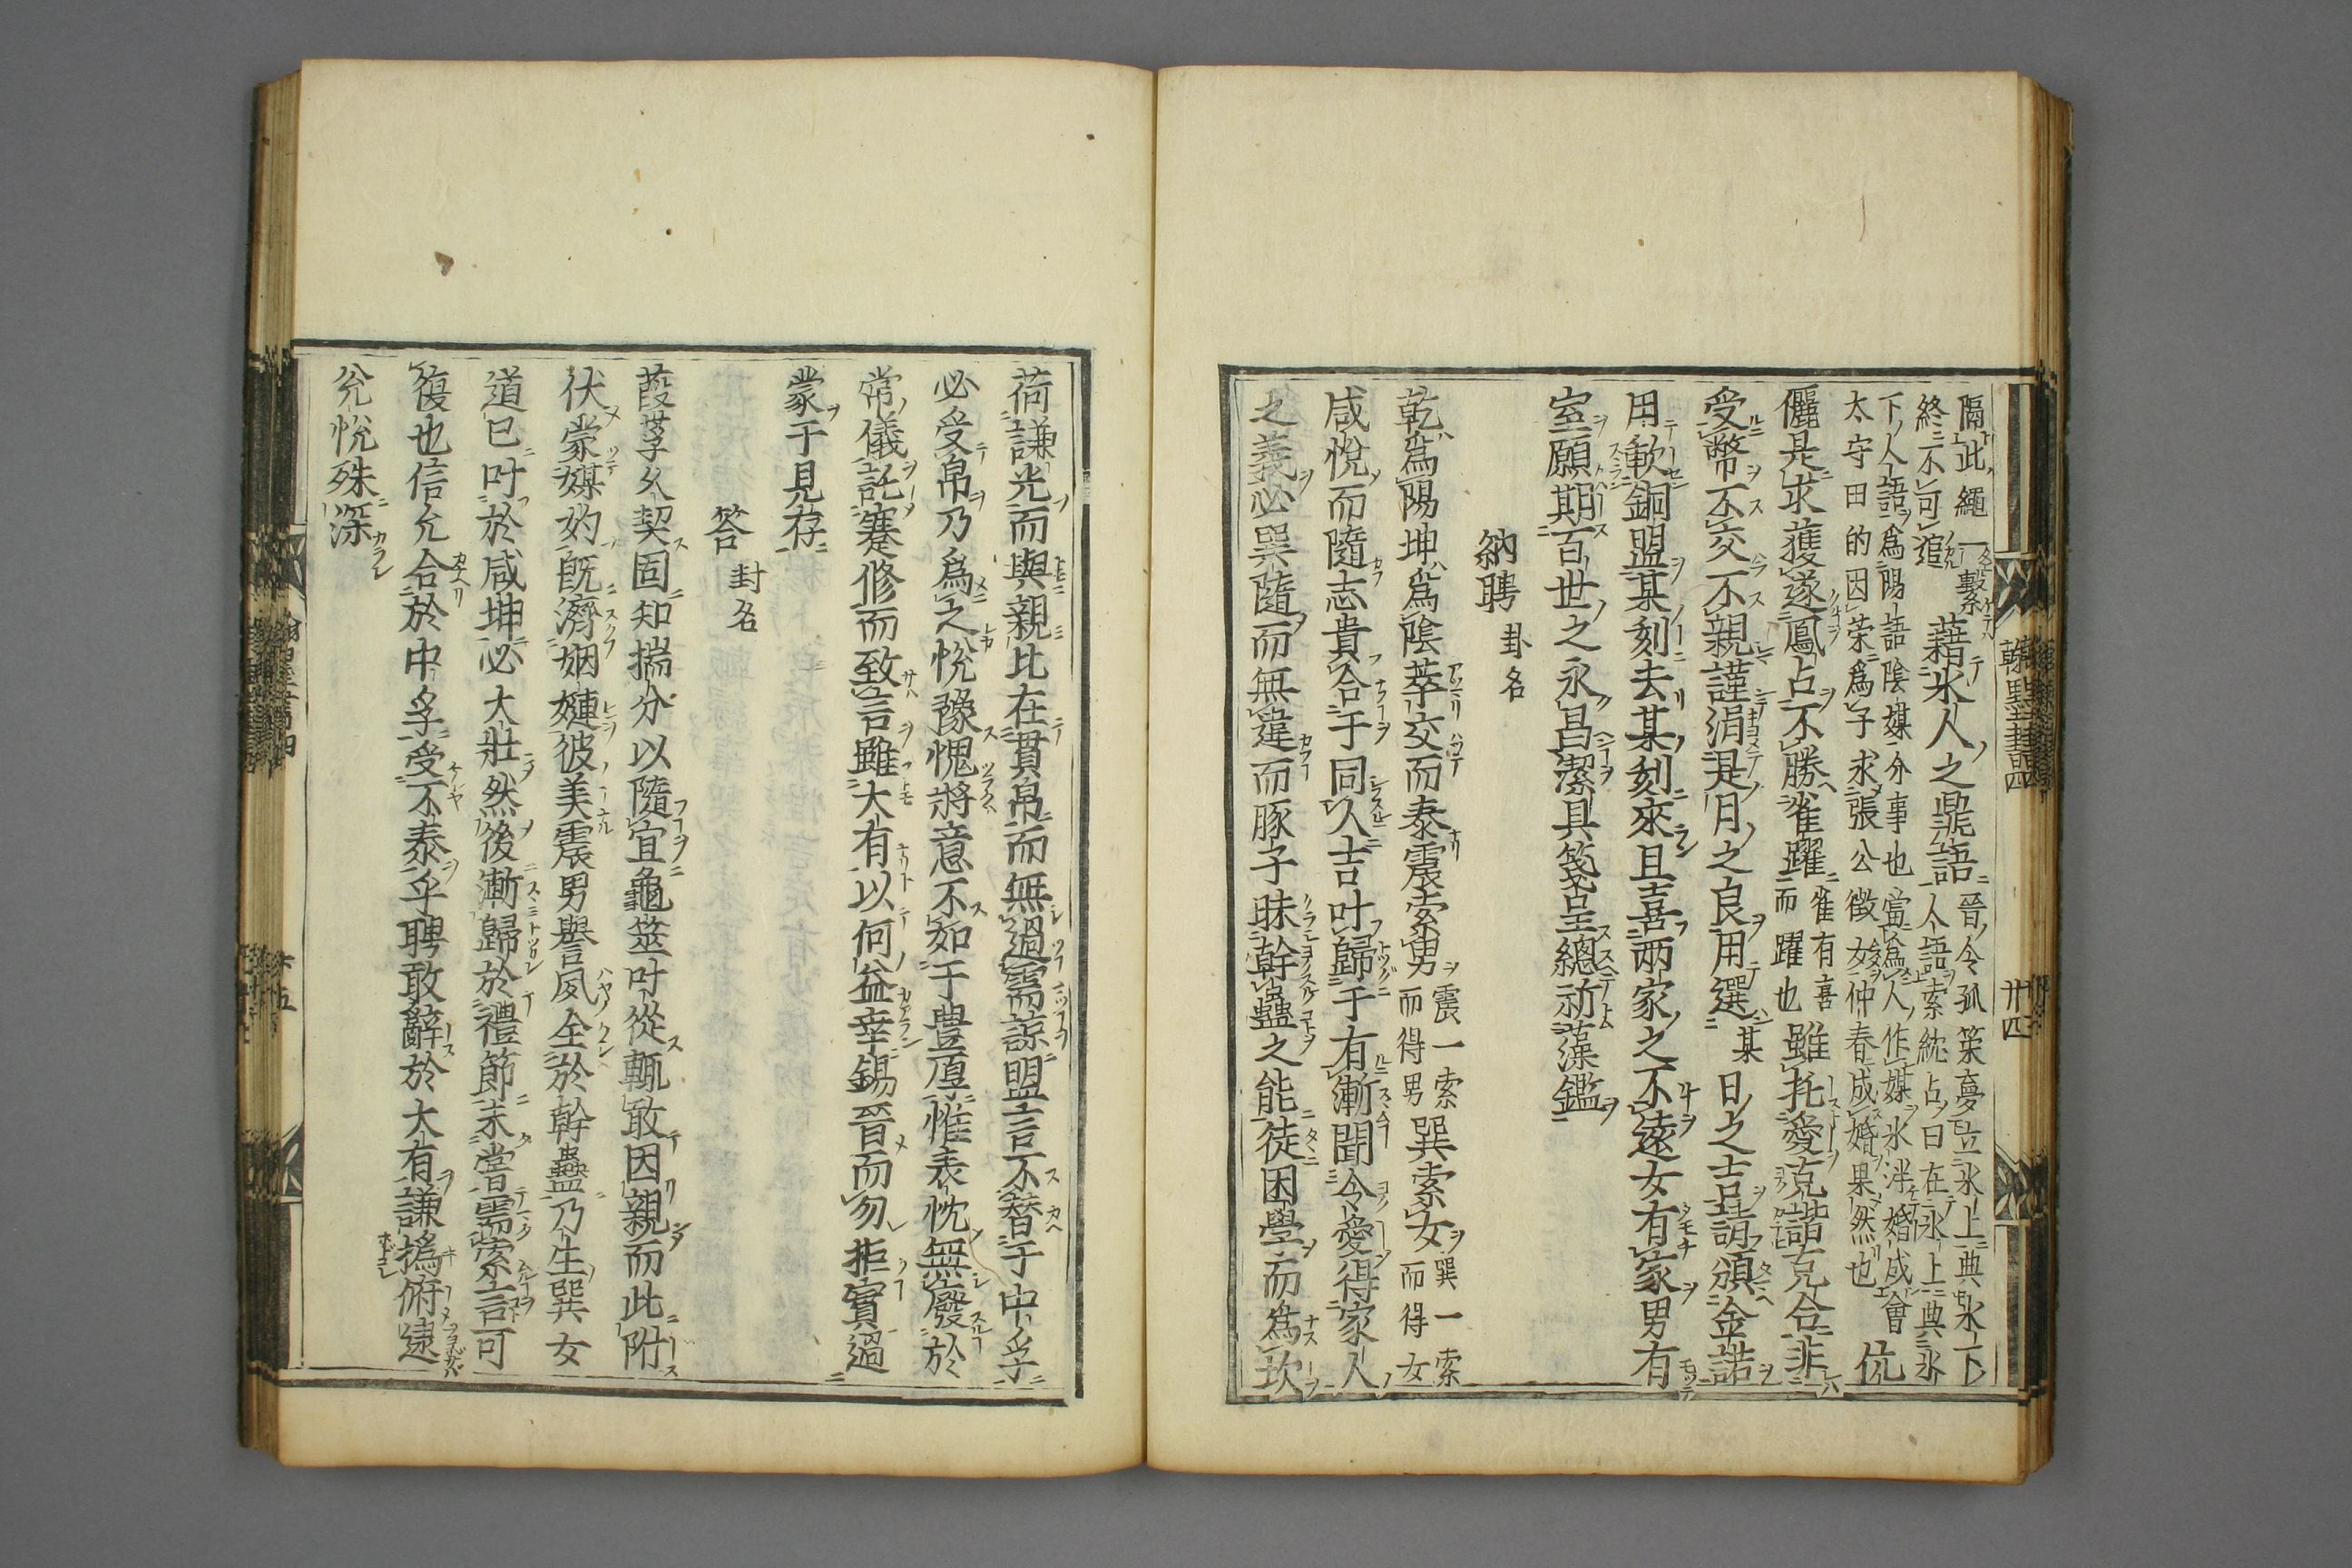 隔此繩一繫
終不可逭
藉氷人之鼎語
晉令狐策夢立氷上與氷下
人語索紞占曰在氷上與氷
下人語爲陽語陰媒介事也當爲人作媒氷泮婚成會
太守田的因策爲子求張公徵女仲春成婚果然也
伉
儷是求獲遂鳳占不勝雀躍
雀有喜
而躍也
雖托愛克諧克合非
受幣不交不親謹涓是月之良用選
某
日之吉請頒金諾
用軟銅盟某刻去某刻來且喜兩家之不遠女有家男有
室願期百世之永昌潔具箋呈總祈藻鑑
納聘 卦名
乾爲陽坤爲陰萃交而泰震索男
震一索
而得男
巽索女
巽一索
而得女
咸悅而隨志貴合于同人吉叶歸于有漸聞令愛得家人
之義必巽隨而無違而豚子昧幹蠱之能徒困學而爲坎
翰墨 四
廿四
荷謙光而與親比在貫帛而無過需諒盟言不替于中孚
必受帛乃爲之悅豫愧將意不如于豊厚惟表忱無廢於
常儀託蹇修而致言雖大有以何益幸錫晉而勿拒實過
蒙于見存
答 封名
葭莩久契固知揣分以隨宜龜筮叶從輒敢因親而此附
伏蒙媒妁旣濟姻嫌彼美震男譽夙全於幹蠱乃生巽女
道已叶於咸坤必大壯然後漸歸於禮節未嘗需索言可
復也信允合於中孚受不泰乎聘敢辭於大有謙撝俯逮
兊悅殊深